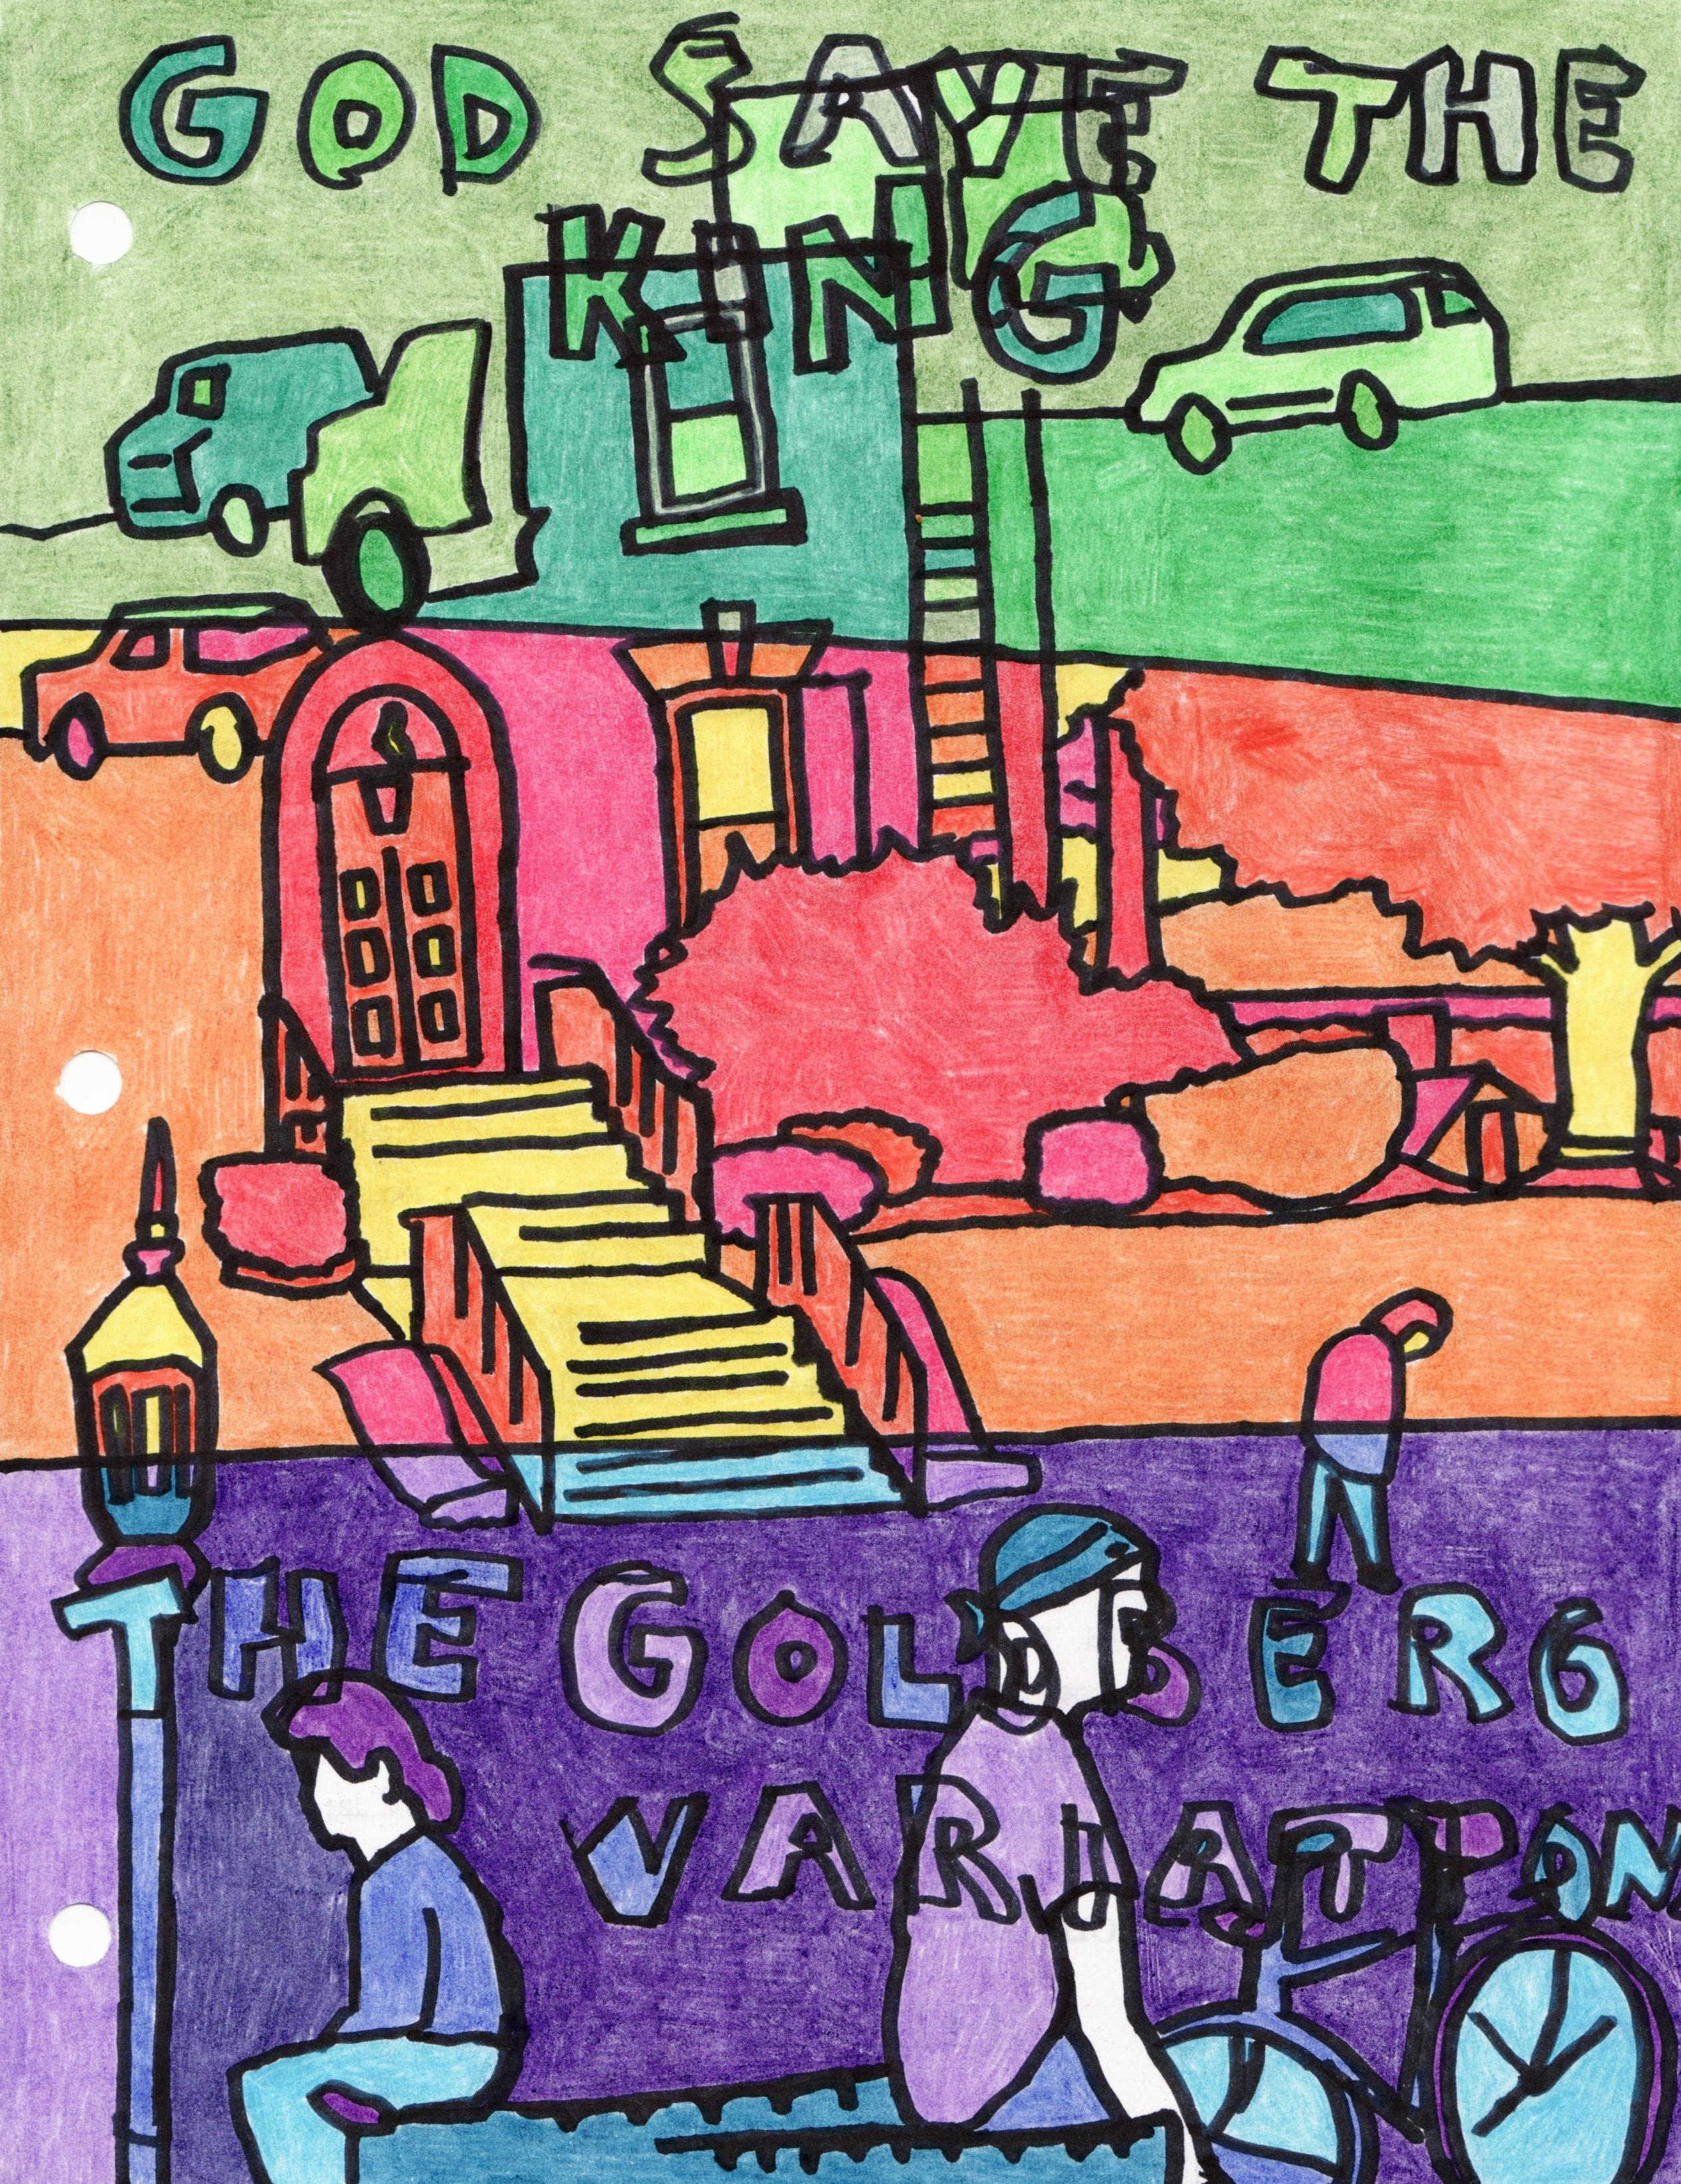 GOD SAVE THE
KING
THE GOLDBERG
VARIATION